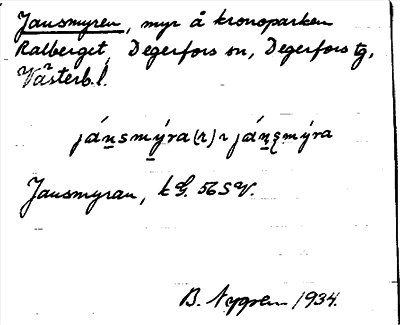 Jansmyren, myr å kronoparken
Ralberget, Degerfors sn, Degerfors tg,
Västerb. l.
já̱nsmýra(r) ~ já̱nsmýra
Jansmyran, k G. 56 SV.
B. Nygren 1934.